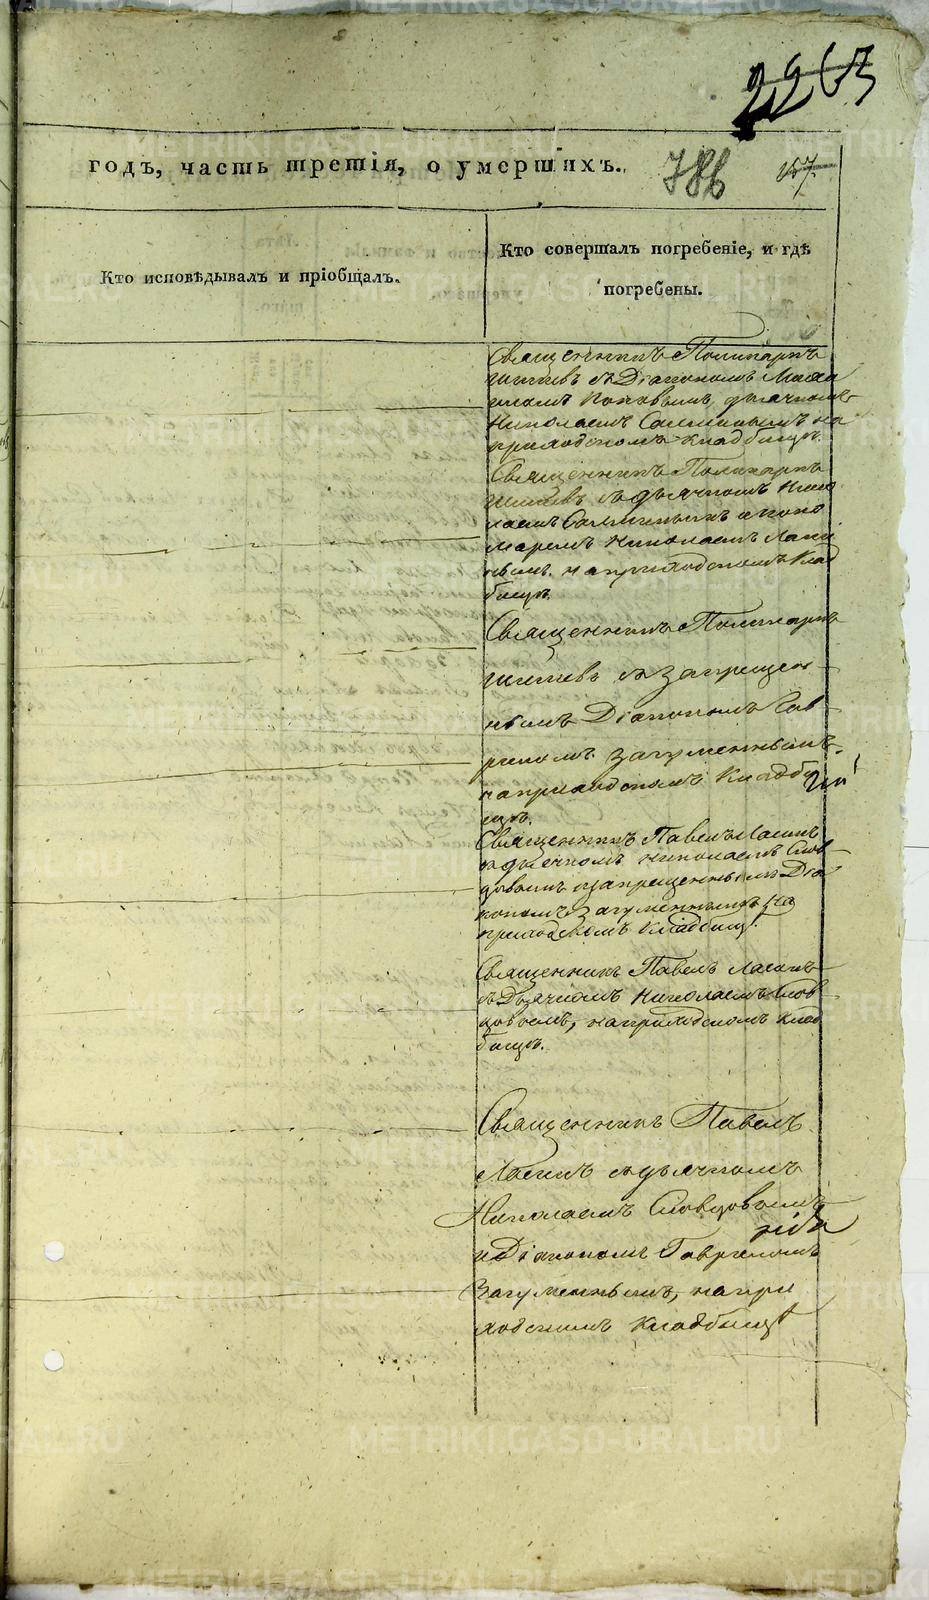 годъ, часть третія, о умершихъ.
786
157
Кто исповѣдывалъ и пріобщалъ.
Кто совершалъ погребеніе, и гдѣ
погребены.
Священникъ Поликарпъ
съ Діакономъ
Поповымъ, дьячкомъ
Николаемъ на
приходскомъ кладбищѣ.
Священникъ Поликарпъ
съ дьячкомъ Нико
лаемъ и поно
маремъ Николаемъ
на приходскомъ клад
бищѣ.
Священникъ Поликарпъ
съ запрещен
нымъ Діакономъ Гав
риломъ Загуменнымъ
на приходскомъ кладби
щѣ.
Священникъ Павелъ
съ дьячкомъ Николаемъ Слов
цовымъ и запрещеннымъ Діа
кономъ Загуменнымъ на
приходскомъ кладбищѣ
Священникъ Павелъ
съ Дьячкомъ Николаемъ Слов
цовымъ, на приходскомъ клад
бищѣ.
Священникъ Павелъ
съ дьячкомъ
Николаемъ Словцовымъ
и Діакономъ Гавриломъ
Загуменнымъ, на при
ходскомъ кладбищѣ
METRIKI.GASO-URAL.RU